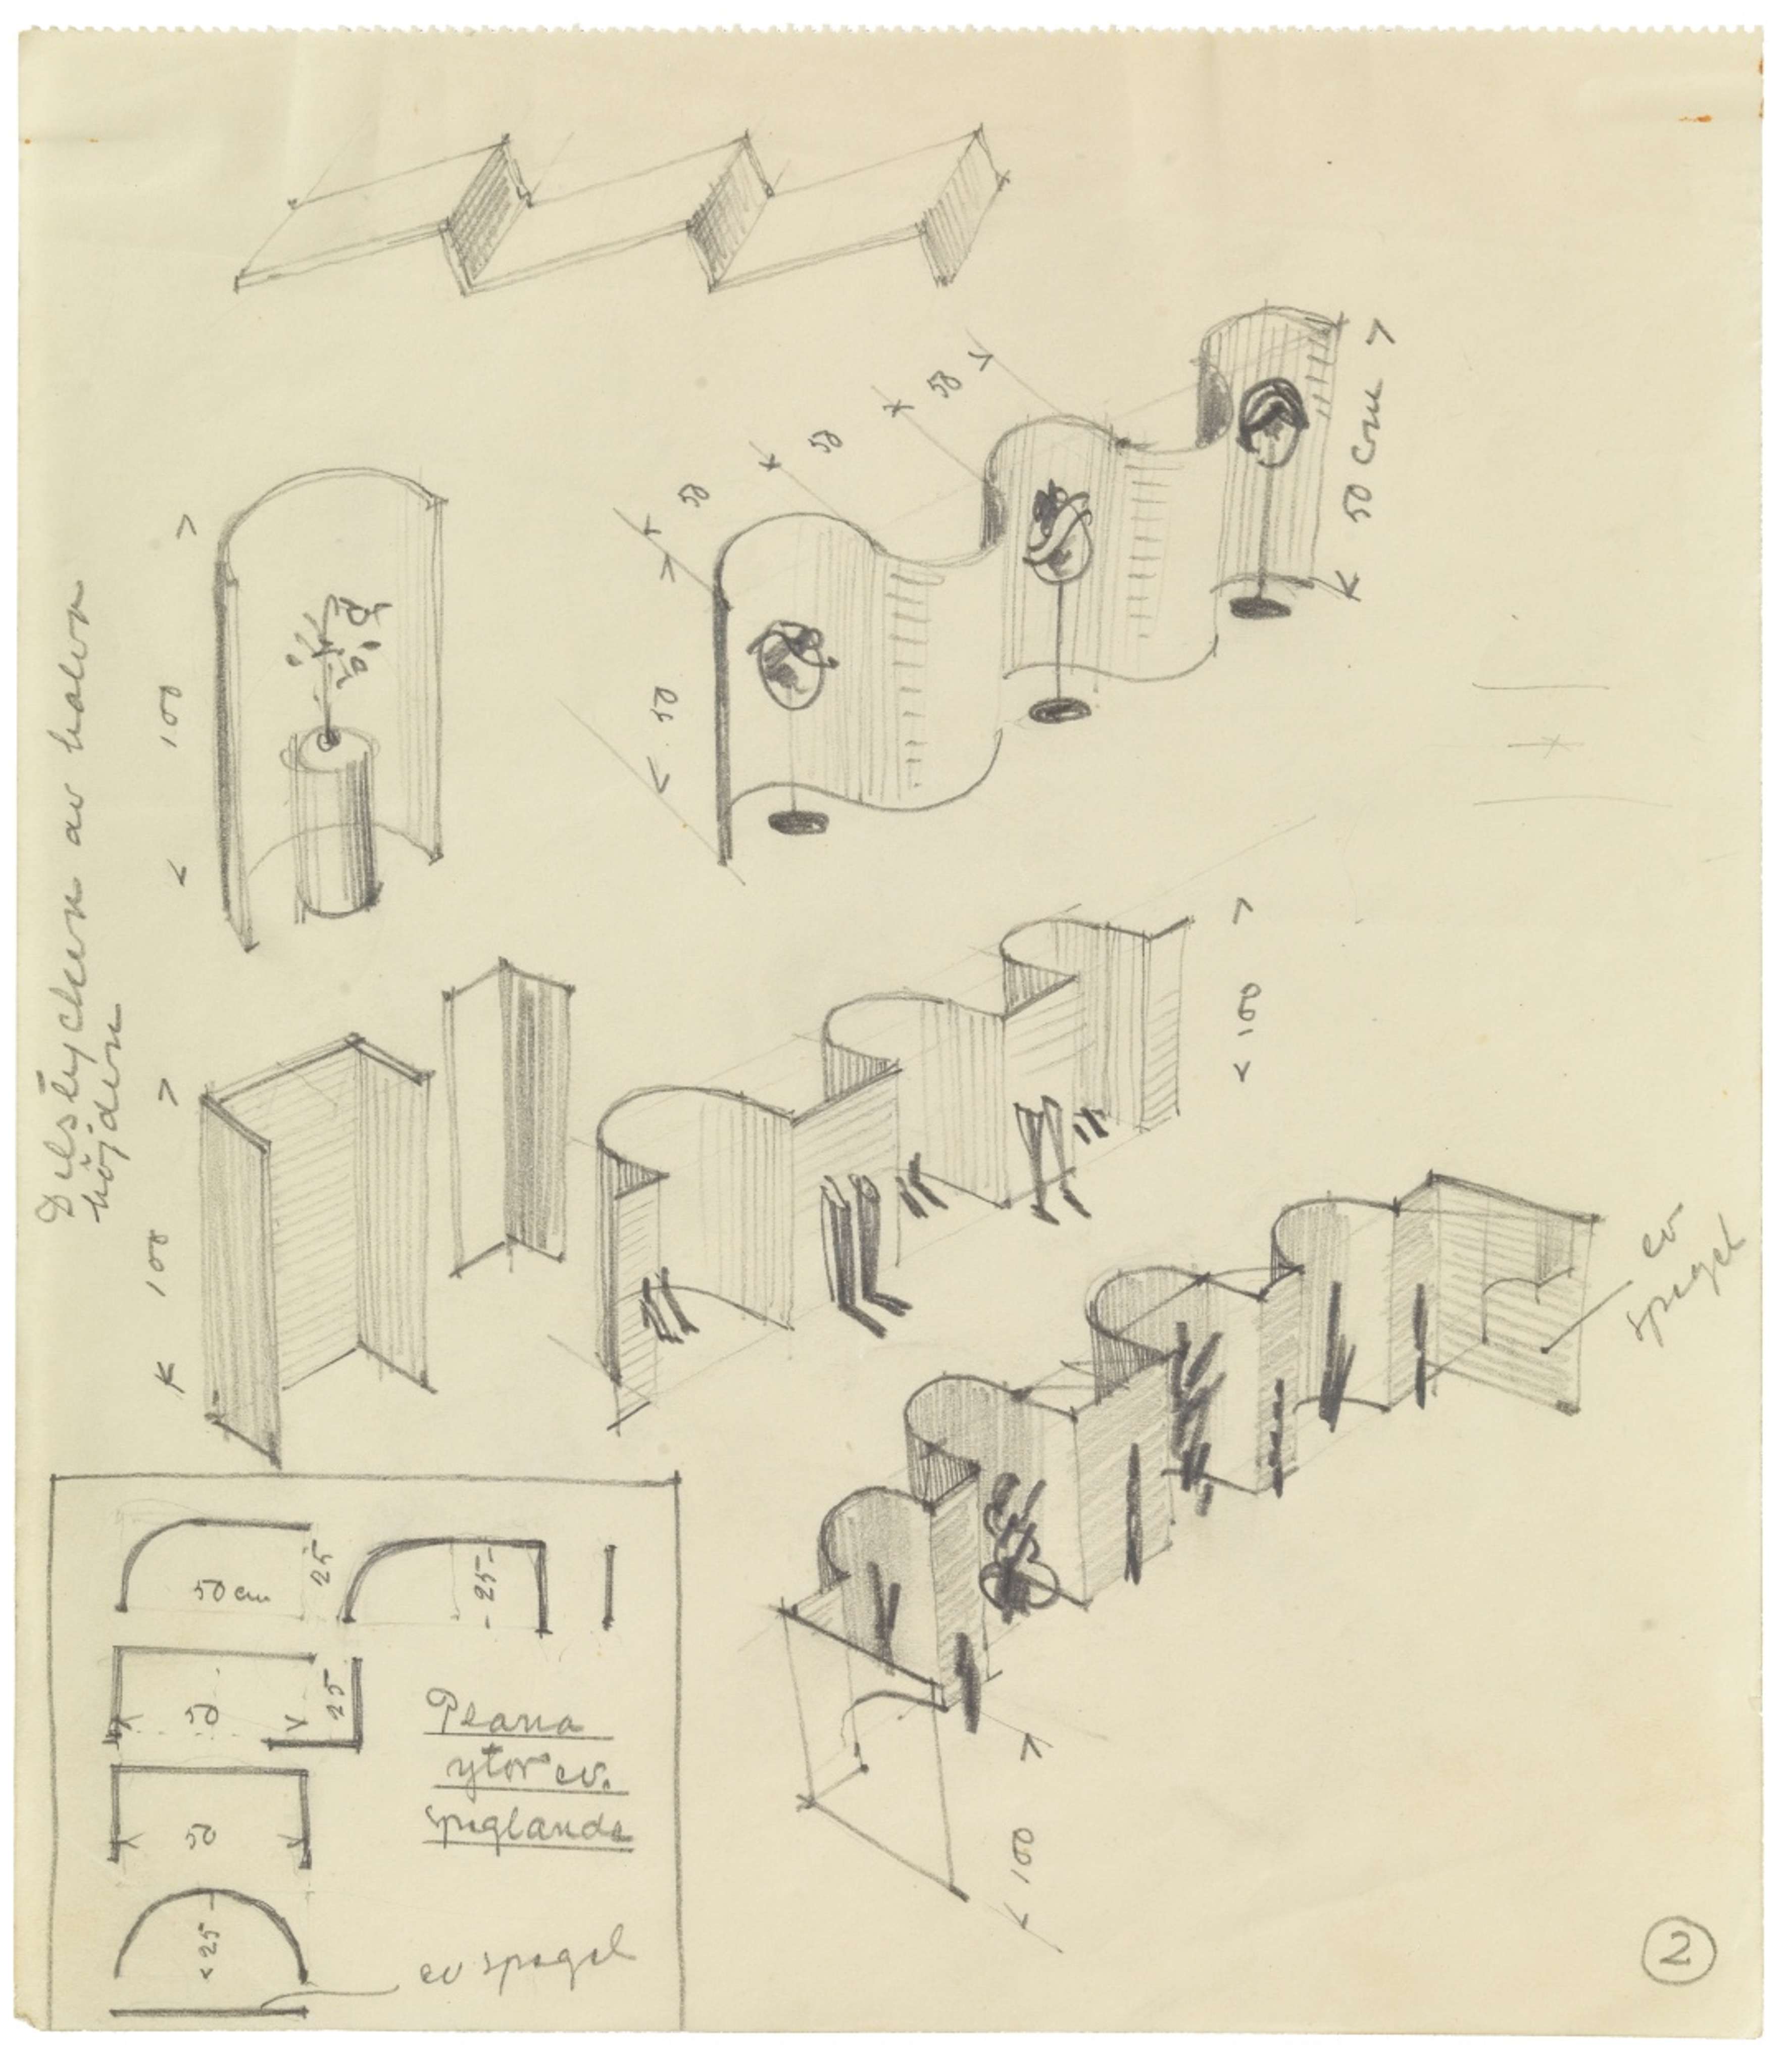 Delstycken av halva
höjden
100
100
50
50
50
50
50
50 cm
100
ev
spegel
50 cm
25
25
50
25
50
Plana
ytor ev.
speglande
25
ev spegel
100
2